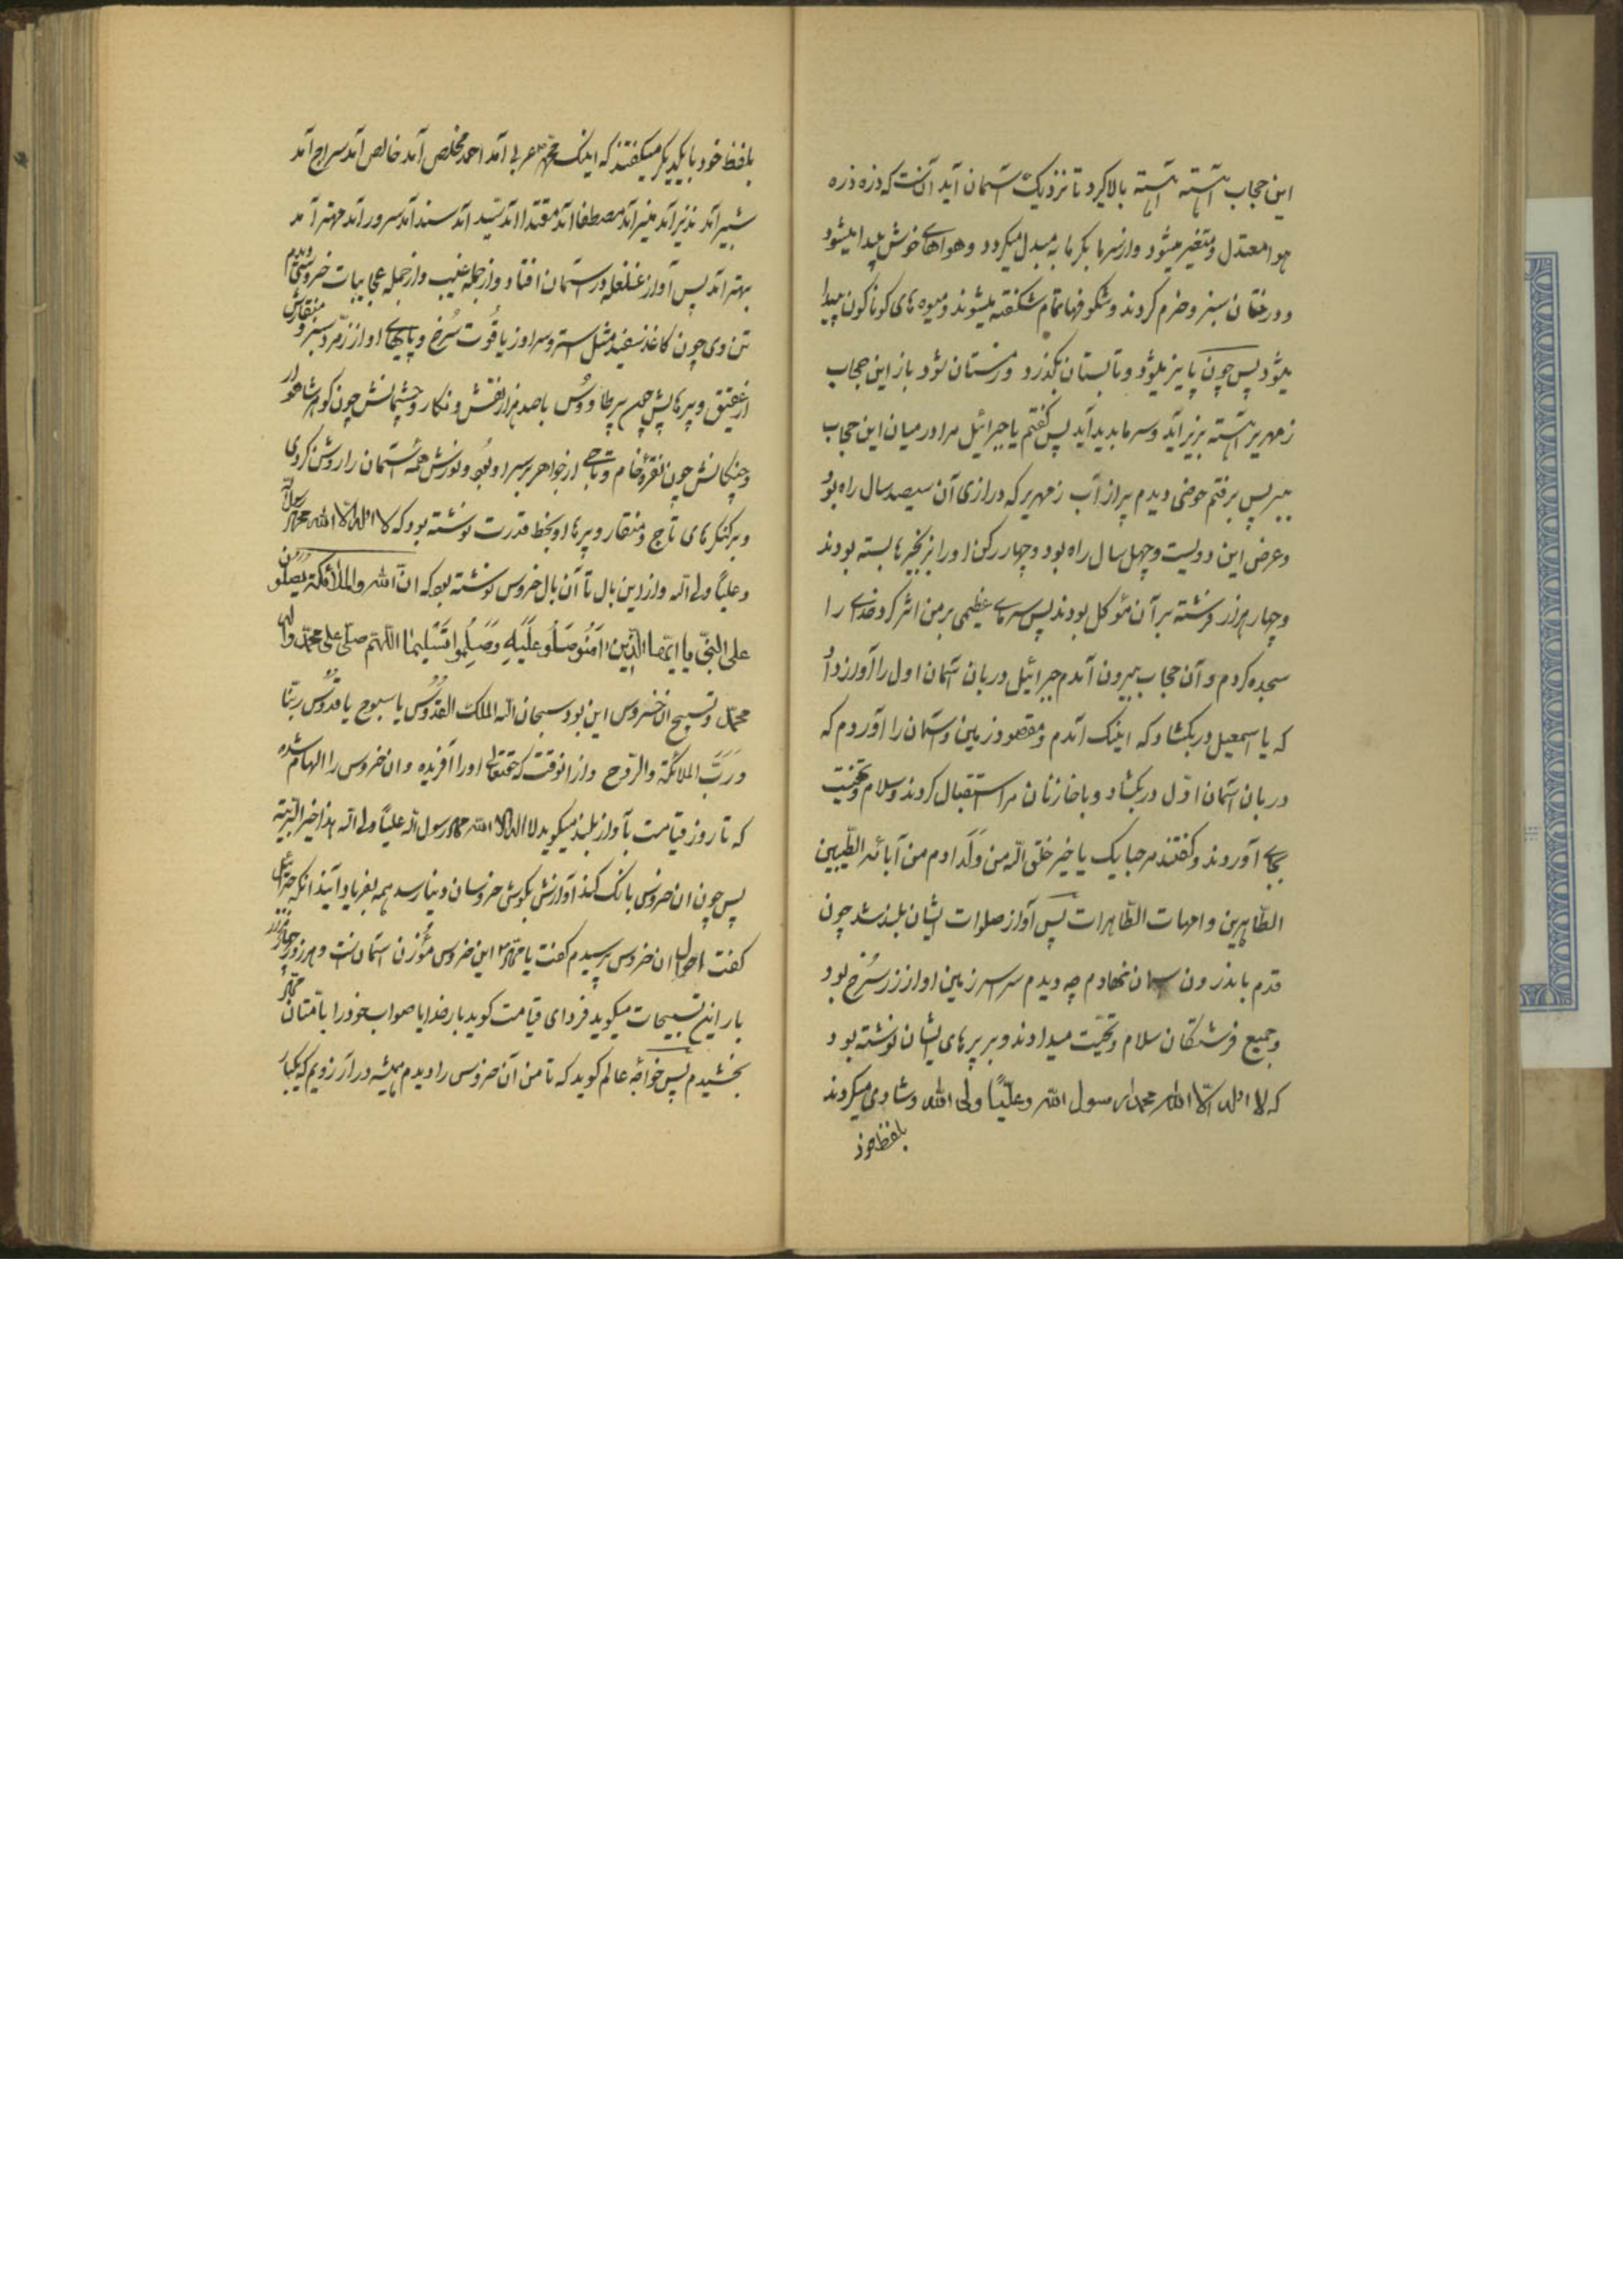 این حجاب آهسته آهسته بالا کیرد تا نزدیک آسمان آید آنست که ذره ذره
هوا معتدل و متغیر میشود و از سرما بکرما به مبدل میکردد و هواهای خوش پیدا میشود
و درختان سبز و خرم کردند و شکوفها تمام شکفته میشوند و میوه های کوناکون پیدا
میشود پس چون پاییز میشود و تابستان بکذرد و زمستان شود باز این حجاب
زمهریر آهسته بزیر آید و سرما بدید آید پس کفتم یا جبرائیل مرا در میان این حجاب
ببر پس برفتم حوضی دیدم پر از آب زمهریر که درازی آن سیصد سال راه بود
و عرض این دویست و چهل سال راه بود و چهار رکن او را بزنجیرها بسته بودند
و چهار هزار فرشته بر آن مؤکل بودند پس سرمای عظیمی بر من اثر کرد خدای را
سجده کردم و از آن حجاب بیرون آمدم جبرائیل دربان آسمان اول را آواز داد
که یا اسمعیل در بکشا که اینک آمدم و مقصود زمین و آسمان را آوردم که
دربان آسمان اول در بکشاد و با خازنان مرا استقبال کردند و سلام و تحیت
بجای آوردند و کفتند مرحبا بک یا خیر خلق الله من ولد ادم من آبائه الطیبین
الطاهرین و امهات الطاهرات پس آواز صلوات ایشان بلند شد چون
قدم باندرون آسمان نهادم چه دیدم سراسر زمین او از زر سُرخ بود
و جمیع فرشتکان سلام و تحیت میدادند و بر پرهای ایشان نوشته بود
که لا اله الا الله محمد رسول الله و علیاً ولی الله و شادی میکردند
بلفظ خود
بلفظ خود با یکدیکر میکفتند که اینک محمد عربی آمد احمد مخلص آمد خالص آمد سراج آمد
بشیر آمد نذیر آمد منیر آمد مصطفا آمد مقتدا آمد سید آمد سند آمد سرور آمد مهتر آمد
بهتر آمد پس آواز غلغله در آسمان افتاد و از جمله غیب و از جمله عجایبات خروسی دیدم
تن وی چون کاغذ سفید مثل استر و سر او از یاقُوت سُرخ و پایهای او از زمّرد سبز و منقارش
از عقیق و پرهایش چون پر طاووُس با صد هزار نقش و نکار و چشمانش چون کوهر شاهوار
و چنکانش چون نقرهٔ خام و تاجی از جواهر بر سر او بود و نورش همه آسمان را روشن کردی
و بر کنکرهای تاج و منقار و پرها او بخط قدرت نوشته بود که لا اله الا الله محمد رسول الله
و علیاً ولی الله و از این بال تا آن بال خروس نوشته بود که انّ الله والملائکته یصلون
علی النبیّ یا ایّها الّذین امَنُو صَلُو عَلَیهِ وَ سَلِمُوا تَسلیما اللّهمّ صلّی علی محمّد وال
محمّد و تسبیح ان خروس این بود سبحان الله الملک القدوس یا سبوح یا قدّوس ربّنا
وَ رَبّ الملائکة والرّوح و از انوقت که حقتعالی او را آفریده و ان خروس را الهام شده
که تا روز قیامت بآواز بلند میکوید لا اله الا الله محمد رسول الله علیاً ولی الله هذا خیر البریّه
پس چون ان خروس بانک کند آوازش بکوش خروسان دنیا رسد همه بفریاد آیند انکه جبرائیل
کفت احوال ان خروس پرسیدم کفت یا محمد این خروس مؤزن آسمانست و هر روز چهار هزار
بار این تسبیحات میکوید فردای قیامت کوید بار خدایا صواب خود را بامّتان محمد
بخشیدم پس خواجه عالم کوید که تا من آن خروس را دیدم همیشه در آرزویم که یکبار